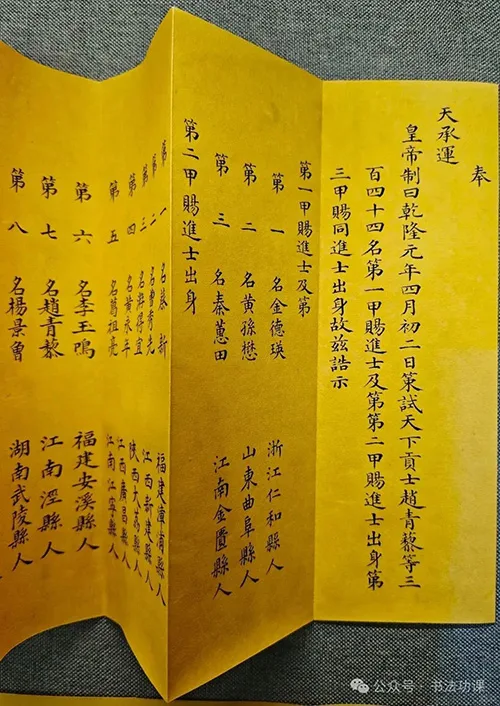 奉
天承運
皇帝制曰乾隆元年四月初二日策試天下貢士趙青藜等三
百四十四名第一甲賜進士及第第二甲賜進士出身第
三甲賜同進士出身故兹誥示
第一甲賜進士及第
第一名金德瑛 浙江仁和縣人
第二名黃孫懋 山東曲阜縣人
第三名秦蕙田 江南金匱縣人
第二甲賜進士出身
第一名蔡新 福建漳浦縣人
第二名曹秀先 江西新建縣人
第三名 得宜 陝西大荔縣人
第四名黃永年 江西廣昌縣人
第五名葛祖亮 江南江寧縣人
第六名李玉鳴 福建安溪縣人
第七名趙青藜 江南涇縣人
第八名楊景曾 湖南武陵縣人
公众号·书法功课